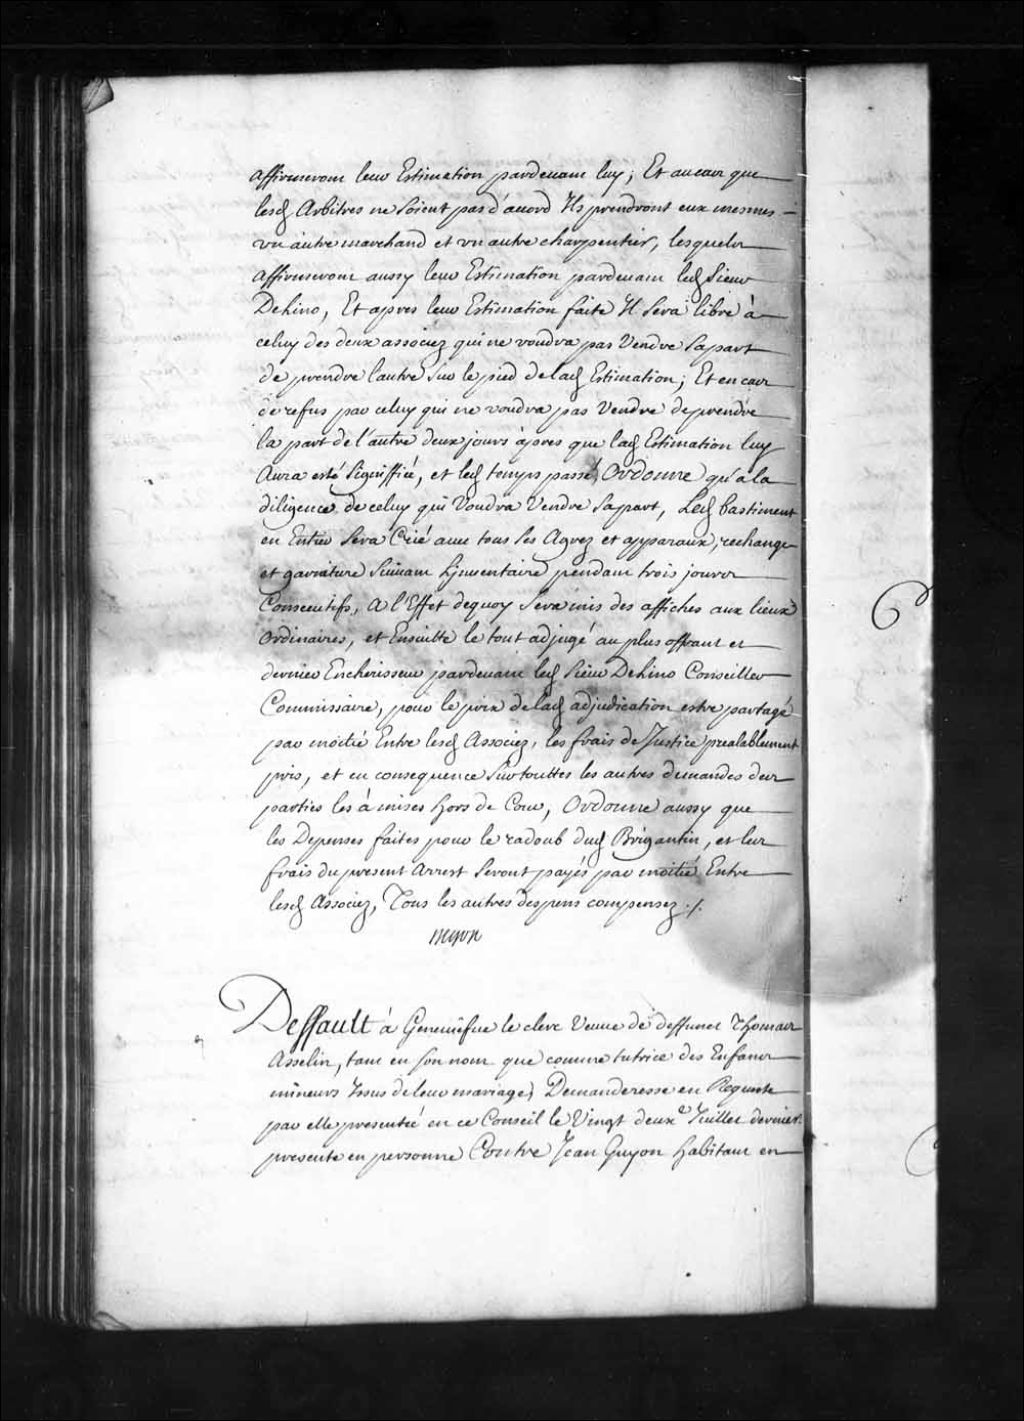 affirmeront leur Estimation pardevant luy; Et au cas que
lesd Arbitres ne soient pas d'accord Ils prendront eux mesmes
un autre marchand et un autre charpentier, lesquels
affirmeront aussy leur Estimation pardevant led Sieur
Dehino, Et apres leur Estimation faite Il sera libre à
celuy des deux associez qui ne voudra pas Vendre sa part
de prendre l'autre sur le pied de lad Estimation; Et en cas
de refus par celuy qui ne voudra pas Vendre de prendre
la part de l'autre deux jours apres que lad Estimation luy
Aura esté Signiffiée, et led temps passé, Ordonne qu'a la
diligence de celuy qui Voudra Vendre sa part, Led bastiment
en Entier sera Crié avec tous ses Agrez et apparaux, rechange
et garniture suivant L'inventaire pendant trois jours
Consecutifs, a l'Effet dequoy sera mis des affiches aux lieux
Ordinaires, et Ensuitte le tout adjugé au plus offrant et
dernier Encherisseur pardevant led Sieur Dehino Conseiller
Commissaire, pour le prix de lad adjudication estre partagé
par moitié Entre lesd Associez, les frais de Justice prealablement
pris, et en consequence Sur touttes les autres demandes des
parties les à mises hors de Cour, Ordonne aussy que
les Depenses faites pour le radoub dud Brigantin, et les
frais du present Arrest seront payés par moitié Entre
lesd Associez, Tous les autres despens compensez ./.
Deffault à Geneviefve le clerc Veuve de deffunct Thomas
Asselin, tant en son nom que comme tutrice des Enfans
mineurs Issus de leur mariage, Demanderesse en Requeste
par elle presentée en ce Conseil le Vingt deuxe Juillet dernier
presente en personne Contre Jean Guyon habitant en